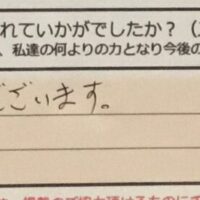 れていかがでしたか?
、私達の何よりの力となり今後の
ございます。